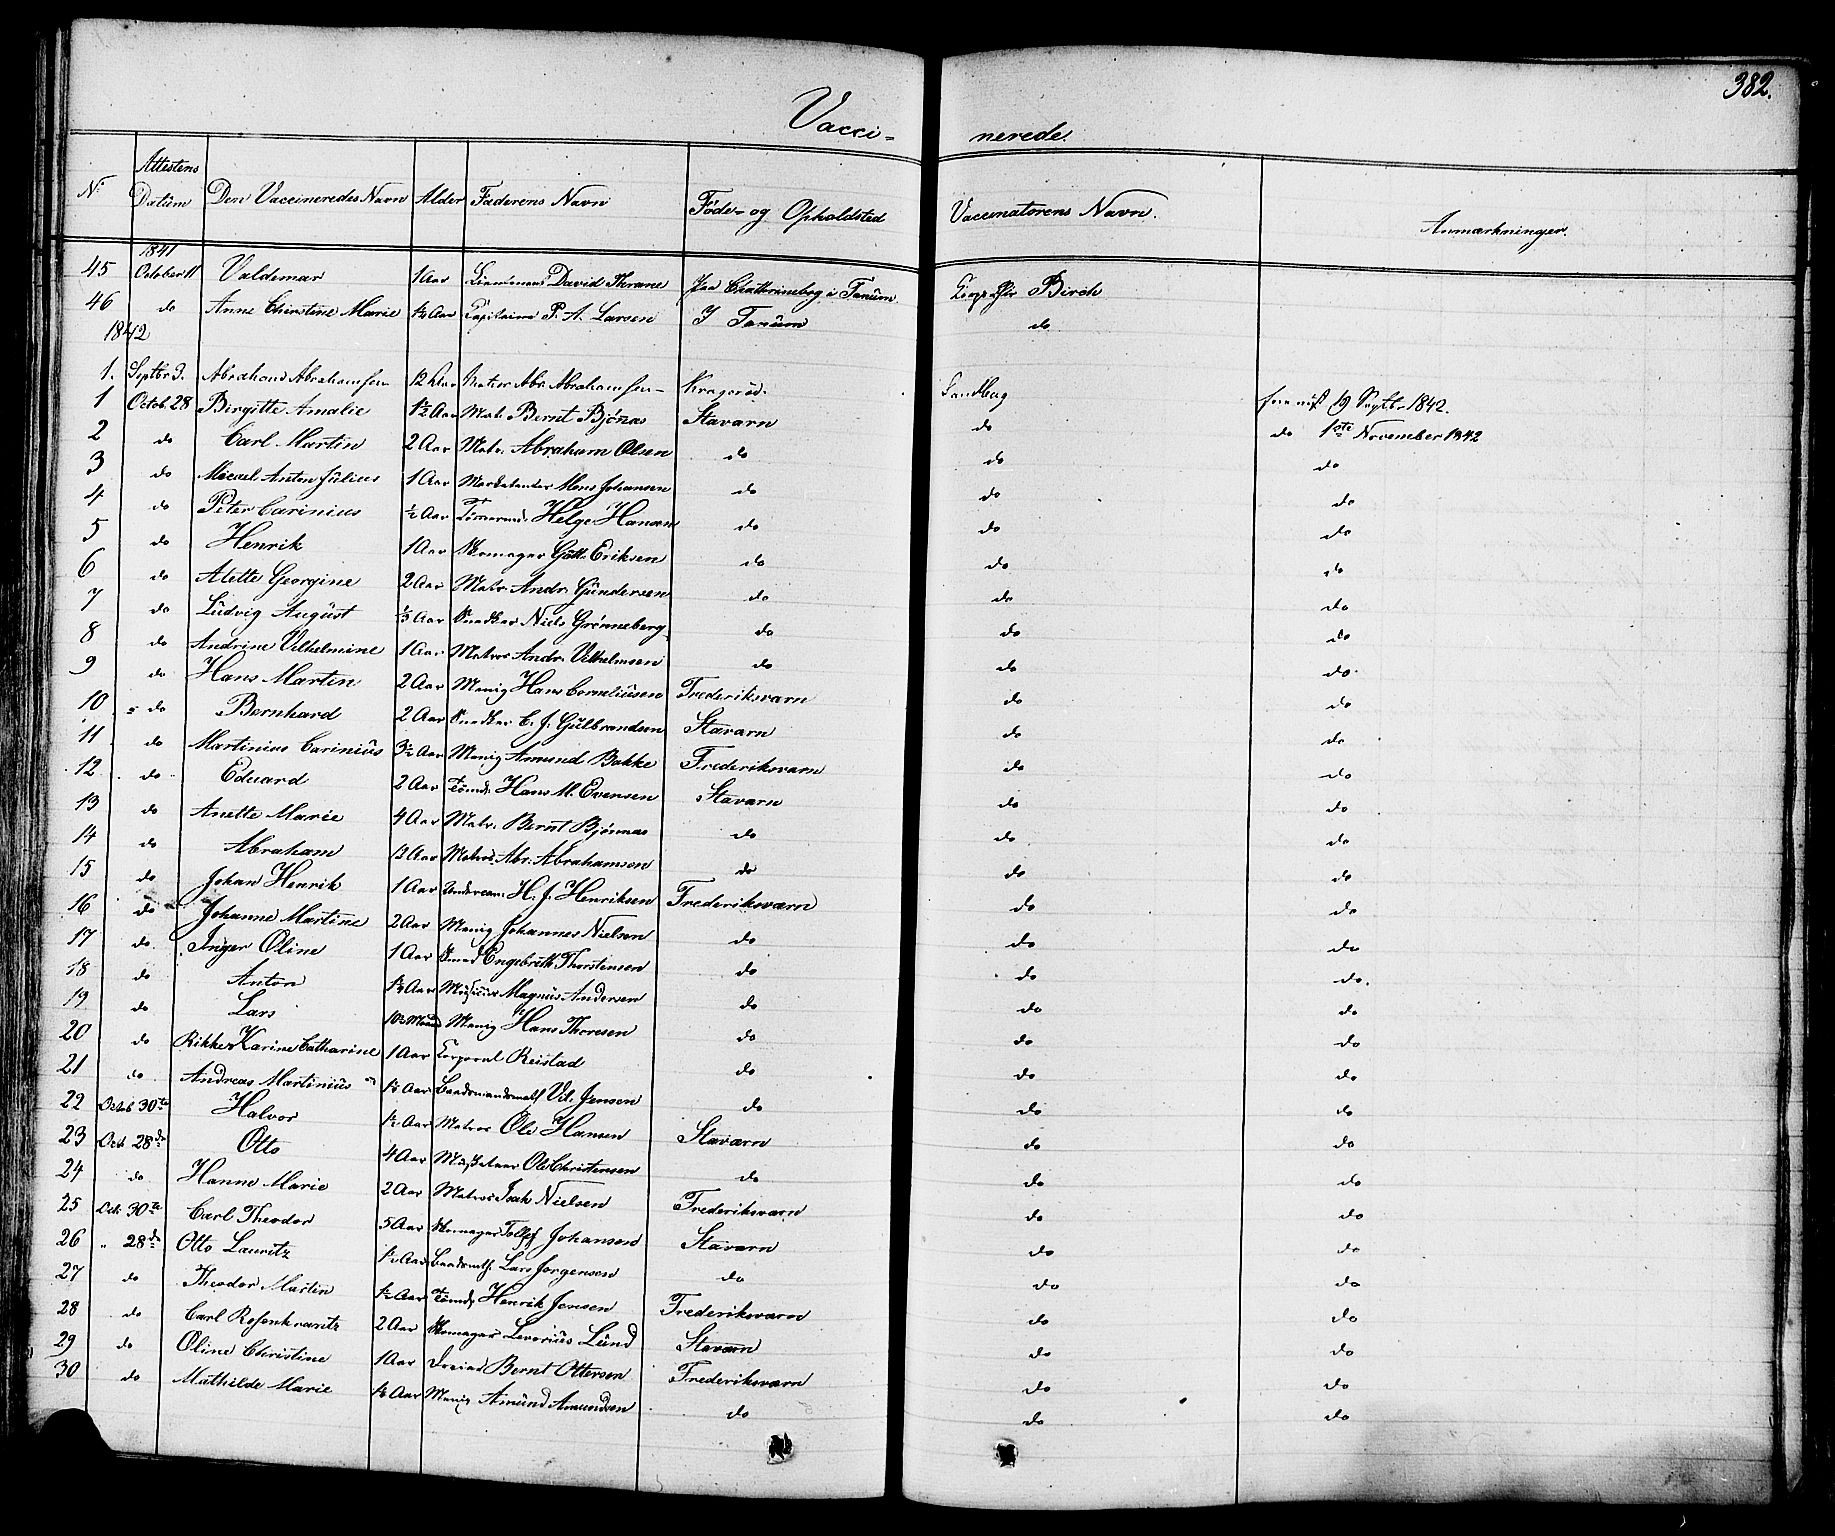 382.
Vacci- nerede.
No Attestens Datum Den Vaccineredes Navn Alder Faderens Navn Føde- og Opholdsted Vaccinatorens Navn. Anmærkninger.
1841
45 October 11 Valdemar 1 Aar David Thrane i Tanum Birch
46 do Anne Christine Marie 1½ Aar Capitaine P. A. Larsen I Tanum do
1842
1. Septbr 3. Abraham Abrahamsen 12 Aar Matros Abr. Abrahamsen Kragerød. Sandberg 19 Septbr. 1842.
1 Octob. 28 Birgitte Amalie 1½ Aar Mat. Bernt Bjønas Stavarn do do 1ste November 1842
2 do Carl Martin 2 Aar Matr. Abraham Olsen do do do
3 do Micael Anton Julius 1 Aar Marketenter Mons Johansen do do do
4 do Peter Carinius ½ Aar Tømermd. Helge Hansen do do do
5 do Henrik 1 Aar Skomager Gutt. Eriksen do do do
6 do Alette Georgine 2 Aar Matr. Andr. Gundersen do do do
7 do Ludvig August ⅓ Aar Snedker Niels Grønneberg do do do
8 do Andrine Vilhelmine 1 Aar Matros Andr. Vilhelmsen do do do
9 do Hans Martin 2 Aar Menig Hans Corneliusen Frederiksvarn do do
10 do Bernhard 2 Aar Snedker C. J. Gulbrandsen Stavarn do do
11 do Martinius Carinius 3½ Aar Menig Amund Bakke Frederiksvarn do do
12 do Eduard 2 Aar Tømd. Hans M. Evensen Stavarn do do
13 do Anette Marie 4 Aar Matr. Bernt Bjønnas do do do
14 do Abraham 12 Aar Matros Abr. Abrahamsen do do do
15 do Johan Henrik 1 Aar H. J. Henriksen Frederiksværn do do
16 do Johanne Martine 2 Aar Menig Johannes Nielsen do do do
17 do Inger Oline 1 Aar Smed Engebreth Thorstensen do do do
18 do Anton Aar Musicus Magnus Andersen do do do
19 do Lars Menig Hans Thoresen do do do
20 do Rikke Karine Catharine 1 Aar Corporal Reistad do do do
21 do Andreas Martinius Aar Vil. Jensen do do do
22 Octob 30te Halvor 1½ Aar Matros Ole Hansen Stavarn do do
23 Oct 28de Otto 4 Aar Ole Christensen do do do
24 do Hanne Marie 2 Aar Matros Isak Nielsen Frederiksvarn do do
25 Oct 30te Carl Theodor 5 Aar Skomager Tollef Johansen Stavarn do do
26 " 28de Otto Lauritz 1½ Aar Lars Jørgensen do do do
27 do Theodor Martin 1½ Aar Tømd. Henrik Jensen Frederiksvarn do do
28 do Carl Rosenkrantz 2 Aar Skomager Leverius Lund Stavarn do do
29 do Oline Christine 1 Aar Dreier Bernt Ottersen Frederiksvarn do do
30 do Mathilde Marie Aar Menig Amund Amundsen do do do